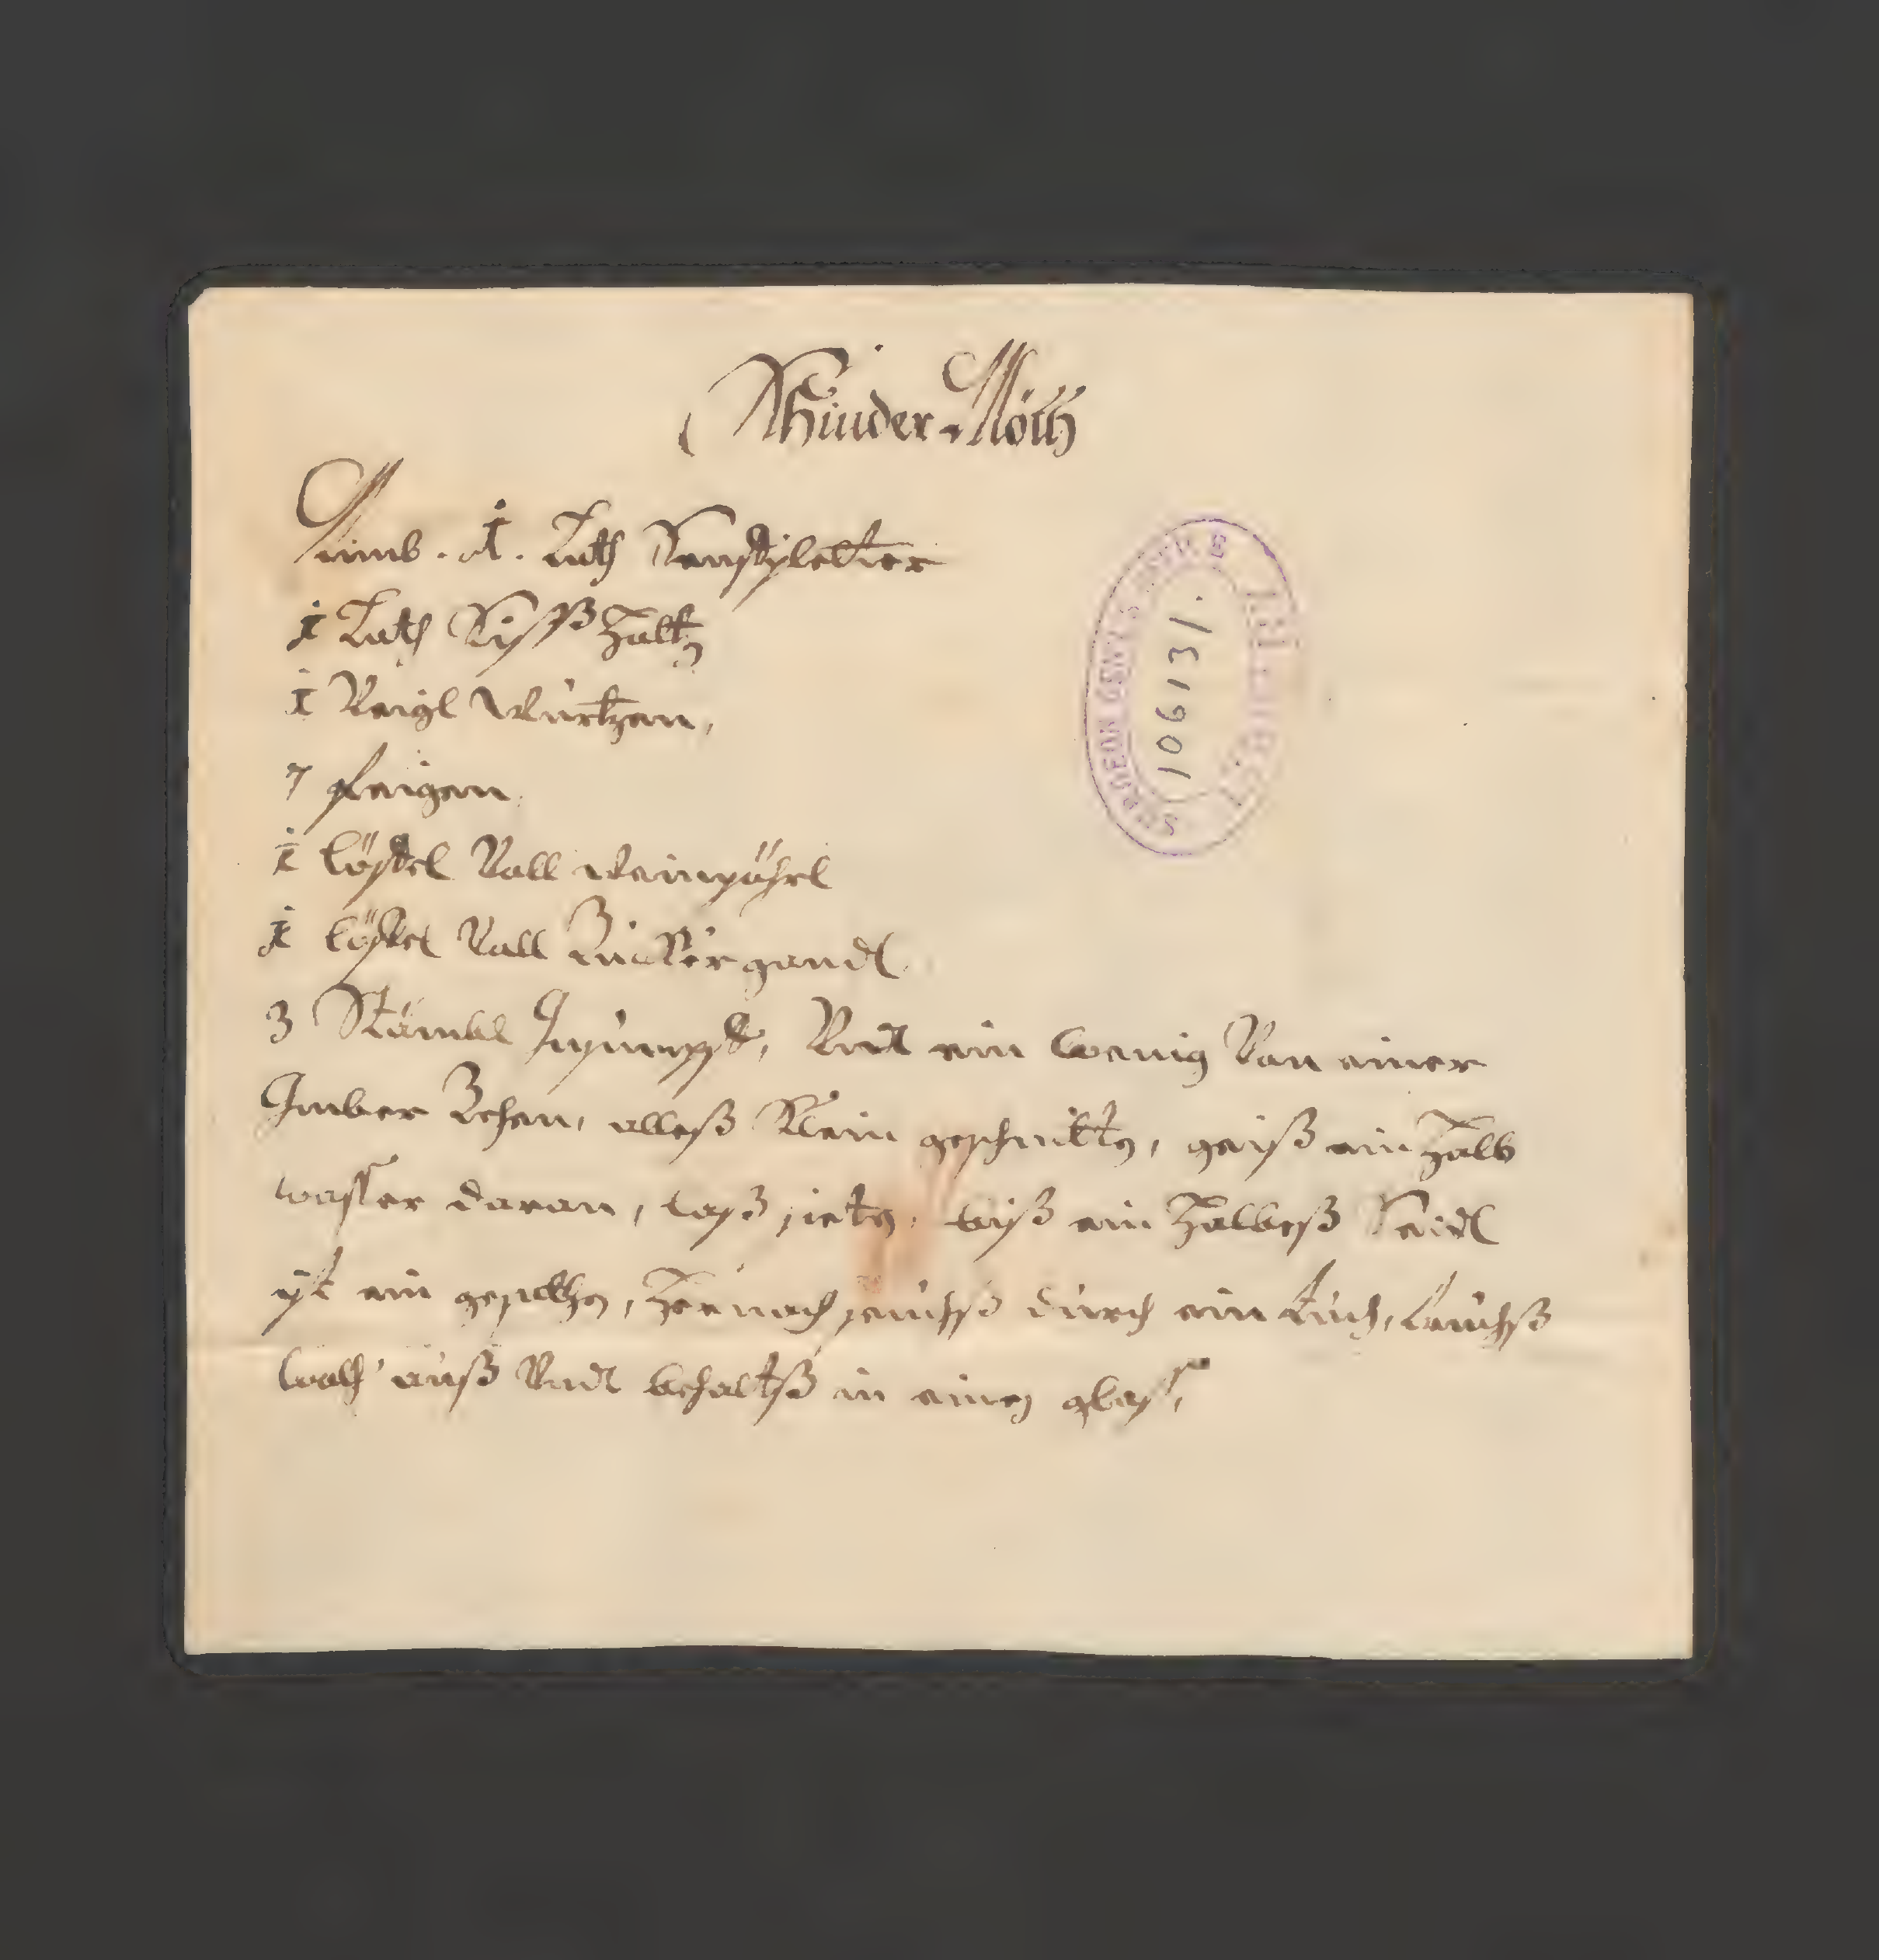 Khinder Möth
Nimb. 1. Loth Senetpletter
1 Loth Siesß Holtz
1 Veigl Wurtzen,
7 feigen
1 löffel Voll weinpöhrl
1 löffel Voll Zuckhergandl
3 Stämbl Vnd ein wenig Von einer
Imber Zehen, alleß Klein geschniten, geiß ein halb
wasser daran, laß sieten, biß ein halbeß Seidl
ist ein gesothen, hernach seichß durch ein tuch, truckhß
woll auß Vnd behaltß in einen glaß,
SURGEON GEN'L'S OFFICE
LIBRARY
106131.